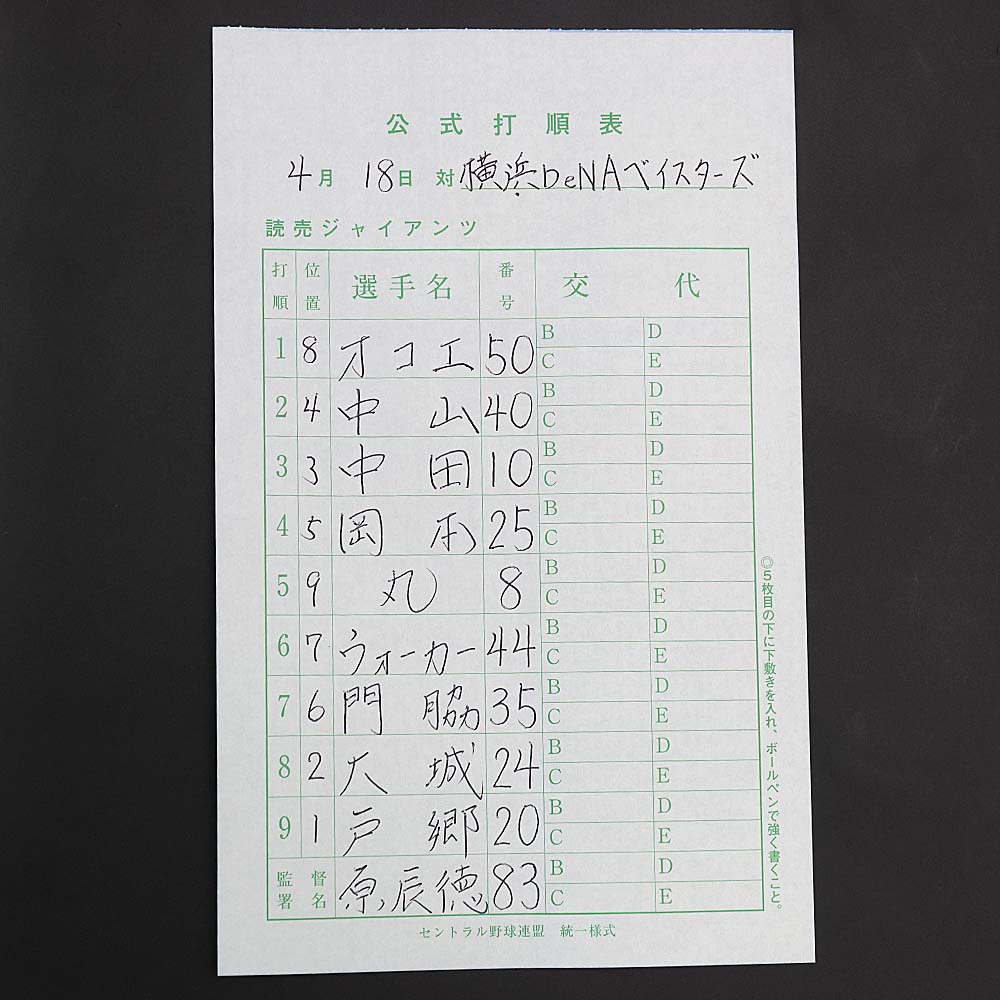 公式打順表
4月 18日 対 横浜DeNAベイスターズ
読売ジャイアンツ
打順 位置 選手名 番号 交代
1 8 オコエ 50 B D
C E
2 4 中山 40 B D
C E
3 3 中田 10 B D
C E
4 5 岡本 25 B D
C E
5 9 丸 8 B D
C E
6 7 ウォーカー 44 B D
C E
7 6 門脇 35 B D
C E
8 2 大城 24 B D
C E
9 1 戸郷 20 B D
C E
監督署名 原辰徳 83 B D
C E
◎5枚目の下に下敷きを入れ、ボールペンで強く書くこと。
セントラル野球連盟 統一様式